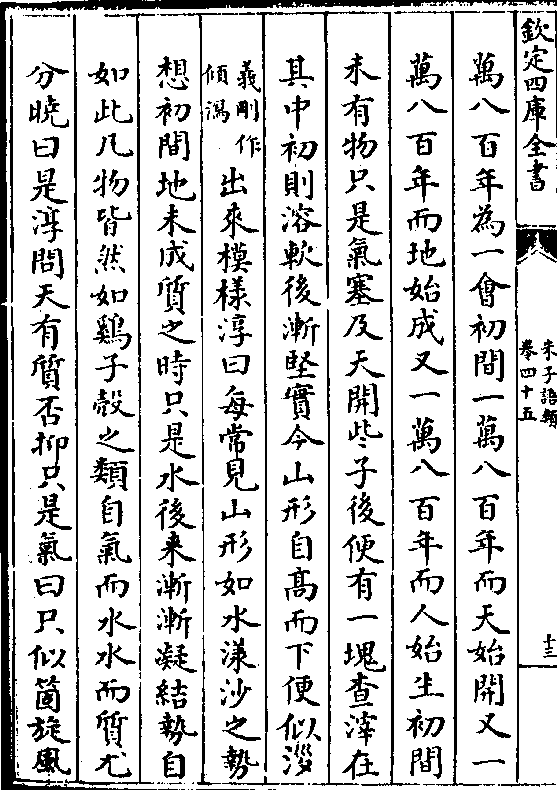 欽定四庫全書
朱子語類
卷四十五
十三
萬八百年為一會初間一萬八百年而天始開又一
萬八百年而地始成又一萬八百年而人始生初間
未有物只是氣塞及天開些子後便有一塊查滓在
其中初則溶軟後漸堅實今山形自高而下便似㳬
義剛作
傾瀉
出來模樣淳曰每常見山形如水漾沙之勢
想初間地未成質之時只是水後来漸漸凝結勢自
如此凡物皆然如鷄子殼之類自氣而水水而質尤
分曉曰是淳問天有質否抑只是氣曰只似箇旋風